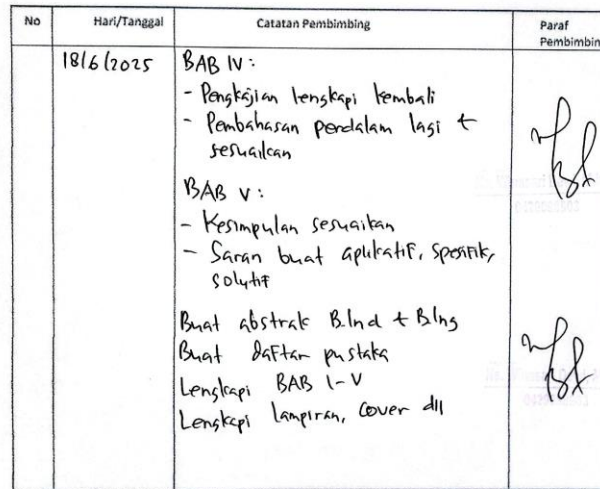 No Hari/Tanggal Catatan Pembimbing Paraf
Pembimbin
18/6/2025 BAB IV:
- Pengkajian lengkapi kembali
- Pembahasan perdalam lagi +
sesuaikan
BAB V:
- Kesimpulan sesuaikan
- Saran buat aplikatif, spesifik,
solutif
Buat abstrak B.Ind + B.Ing
Buat daftar pustaka
Lengkapi BAB I-V
Lengkapi lampiran, cover dll